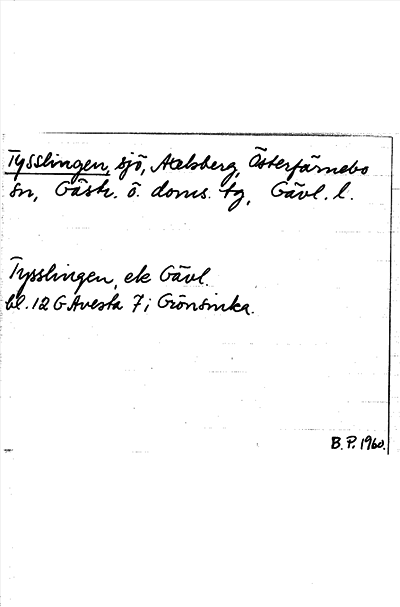 Tysslingen, sjö, Axelsberg, Österfärnebo
sn, Gästr. ö. doms. tg, Gävl. l.
Tysslingen, ek Gävl.
bl. 12 G Avesta 7; Grönsinka.
B. P. 1960.